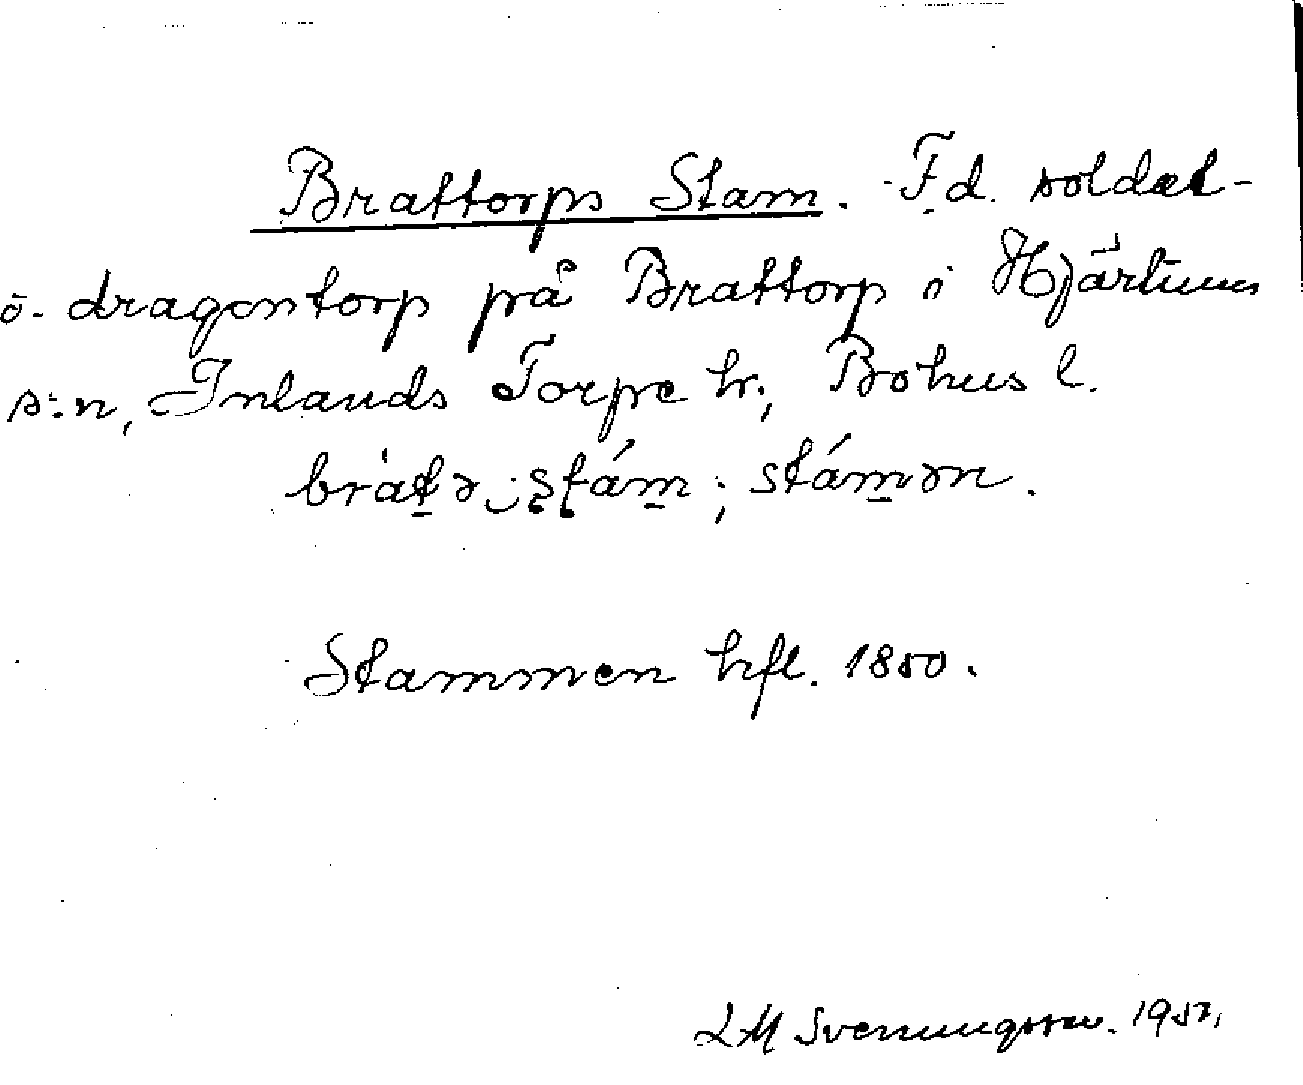 Brattorps Stam. F.d. soldat-
o. dragontorp på Brattorp i Hjärtums
s:n, Inlands Torpe hr., Bohus l.
bràt̠ə‿ʂʈám̠; stám̠ən.
Stammen hfl. 1850.
LM Svenungsson. 1957.